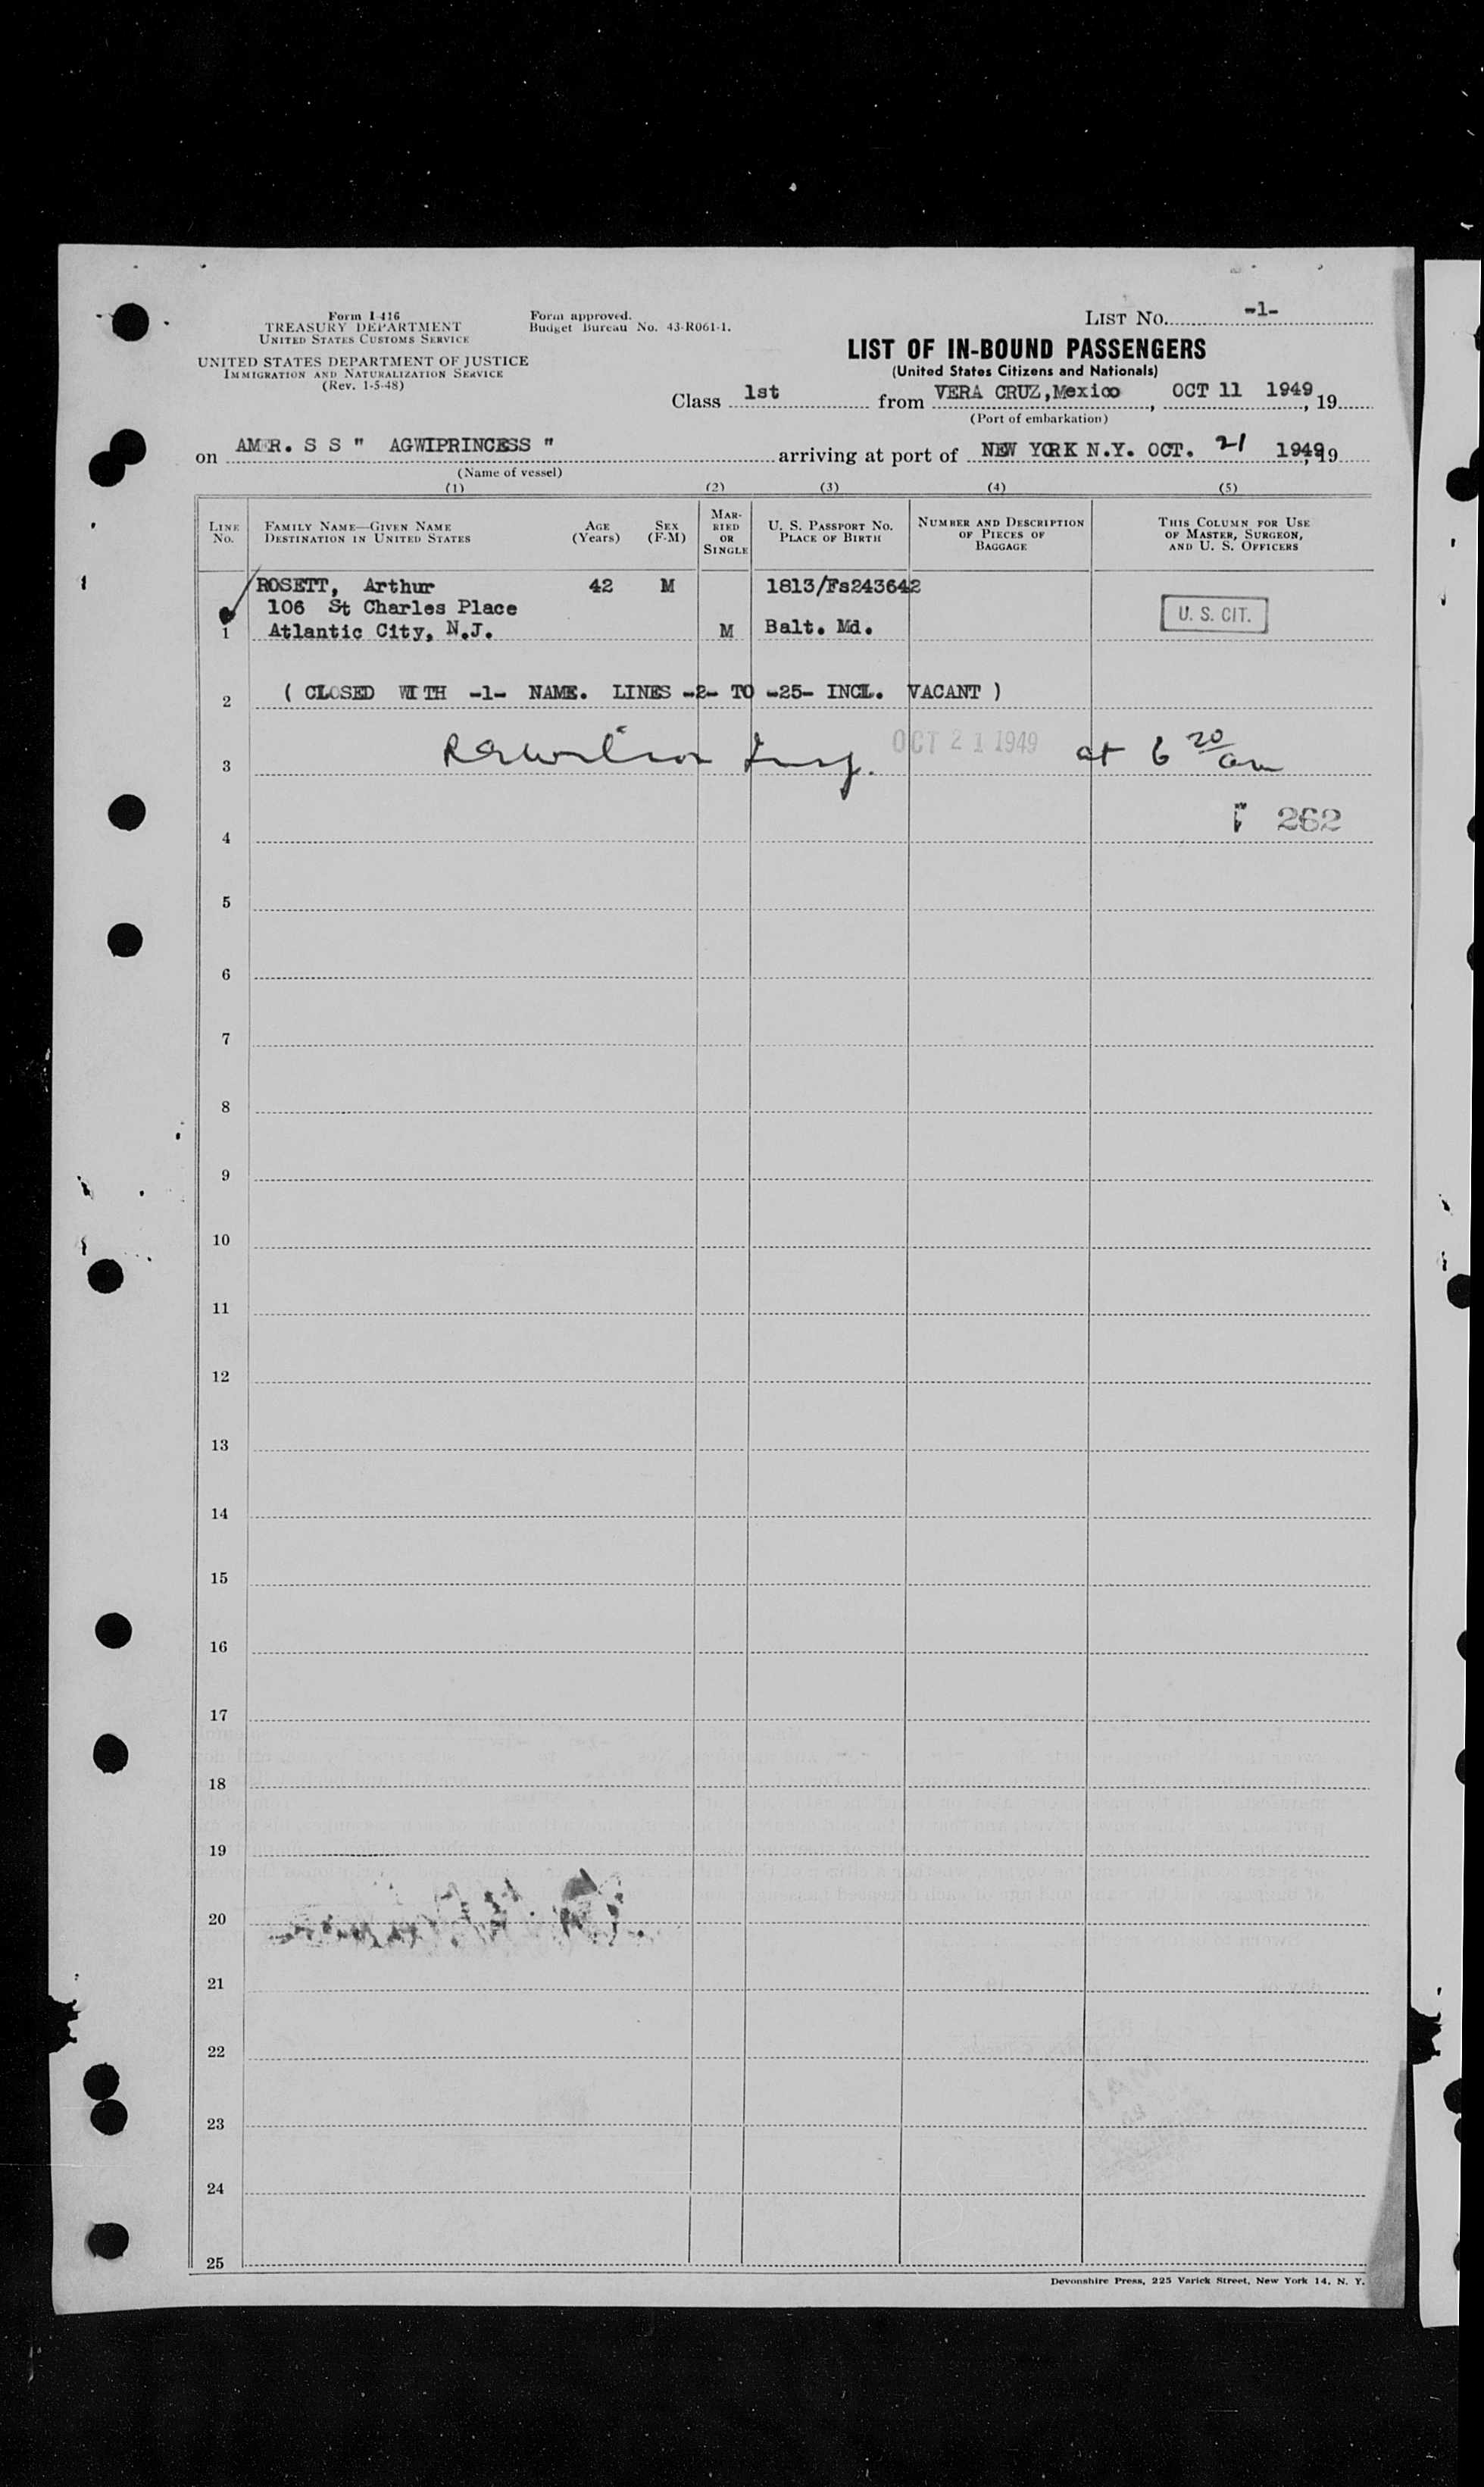 Form I-416
TREASURY DEPARTMENT
UNITED STATES CUSTOMS SERVICE
UNITED STATES DEPARTMENT OF JUSTICE
IMMIGRATION AND NATURALIZATION SERVICE
(Rev. 1-5-48)
Form approved.
Budget Bureau No. 43-R061-1.
LIST NO. -1-
LIST OF IN-BOUND PASSENGERS
(United States Citizens and Nationals)
Class 1st from VERA CRUZ, Mexico, OCT 11 1949, 19
(Port of embarkation)
on AMER. S S " AGWIPRINCESS " arriving at port of NEW YORK N.Y. OCT. 21 1949, 19
(Name of vessel)
(1) (2) (3) (4) (5)
LINE NO. FAMILY NAME—GIVEN NAME DESTINATION IN UNITED STATES AGE (Years) SEX (F-M) MARRIED OR SINGLE U. S. PASSPORT NO. PLACE OF BIRTH NUMBER AND DESCRIPTION OF PIECES OF BAGGAGE THIS COLUMN FOR USE OF MASTER, SURGEON, AND U. S. OFFICERS
ROSETT, Arthur 42 M 1813/Fs243642
106 St Charles Place U. S. CIT.
1 Atlantic City, N.J. M Balt. Md.
2 ( CLOSED WITH -1- NAME. LINES -2- TO -25- INCL. VACANT )
3 Insp. OCT 21 1949 at 6 20 am
4 262
5
6
7
8
9
10
11
12
13
14
15
16
17
18
19
20
21
22
23
24
25
Devonshire Press, 225 Varick Street, New York 14, N. Y.